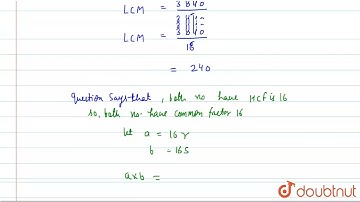 LCM = 3840
LCM = 3840
= 240
Question Says that, both no have HCF is 16
so, both no. have common factor 16
let a = 16r
b = 16s
a×b =
doubtnut